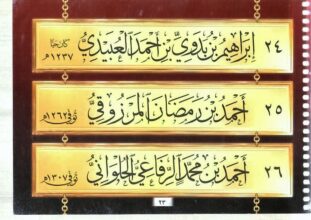 ٢٤ إِبْرَاهِيمُ بْنُ بَدَوِيِّ بْنِ أَحْمَدَ الْعُبَيْدِيُّ كان حيا ١٢٣٧هـ
٢٥ أَحْمَدُ بْنُ رَمَضَانَ الْمَرْزُوقِيُّ توفي ١٢٦٢هـ
٢٦ أَحْمَدُ بْنُ مُحَمَّدٍ الرِّفَاعِيُّ الْحَلْوَانِيُّ توفي ١٣٠٧هـ
٢٣